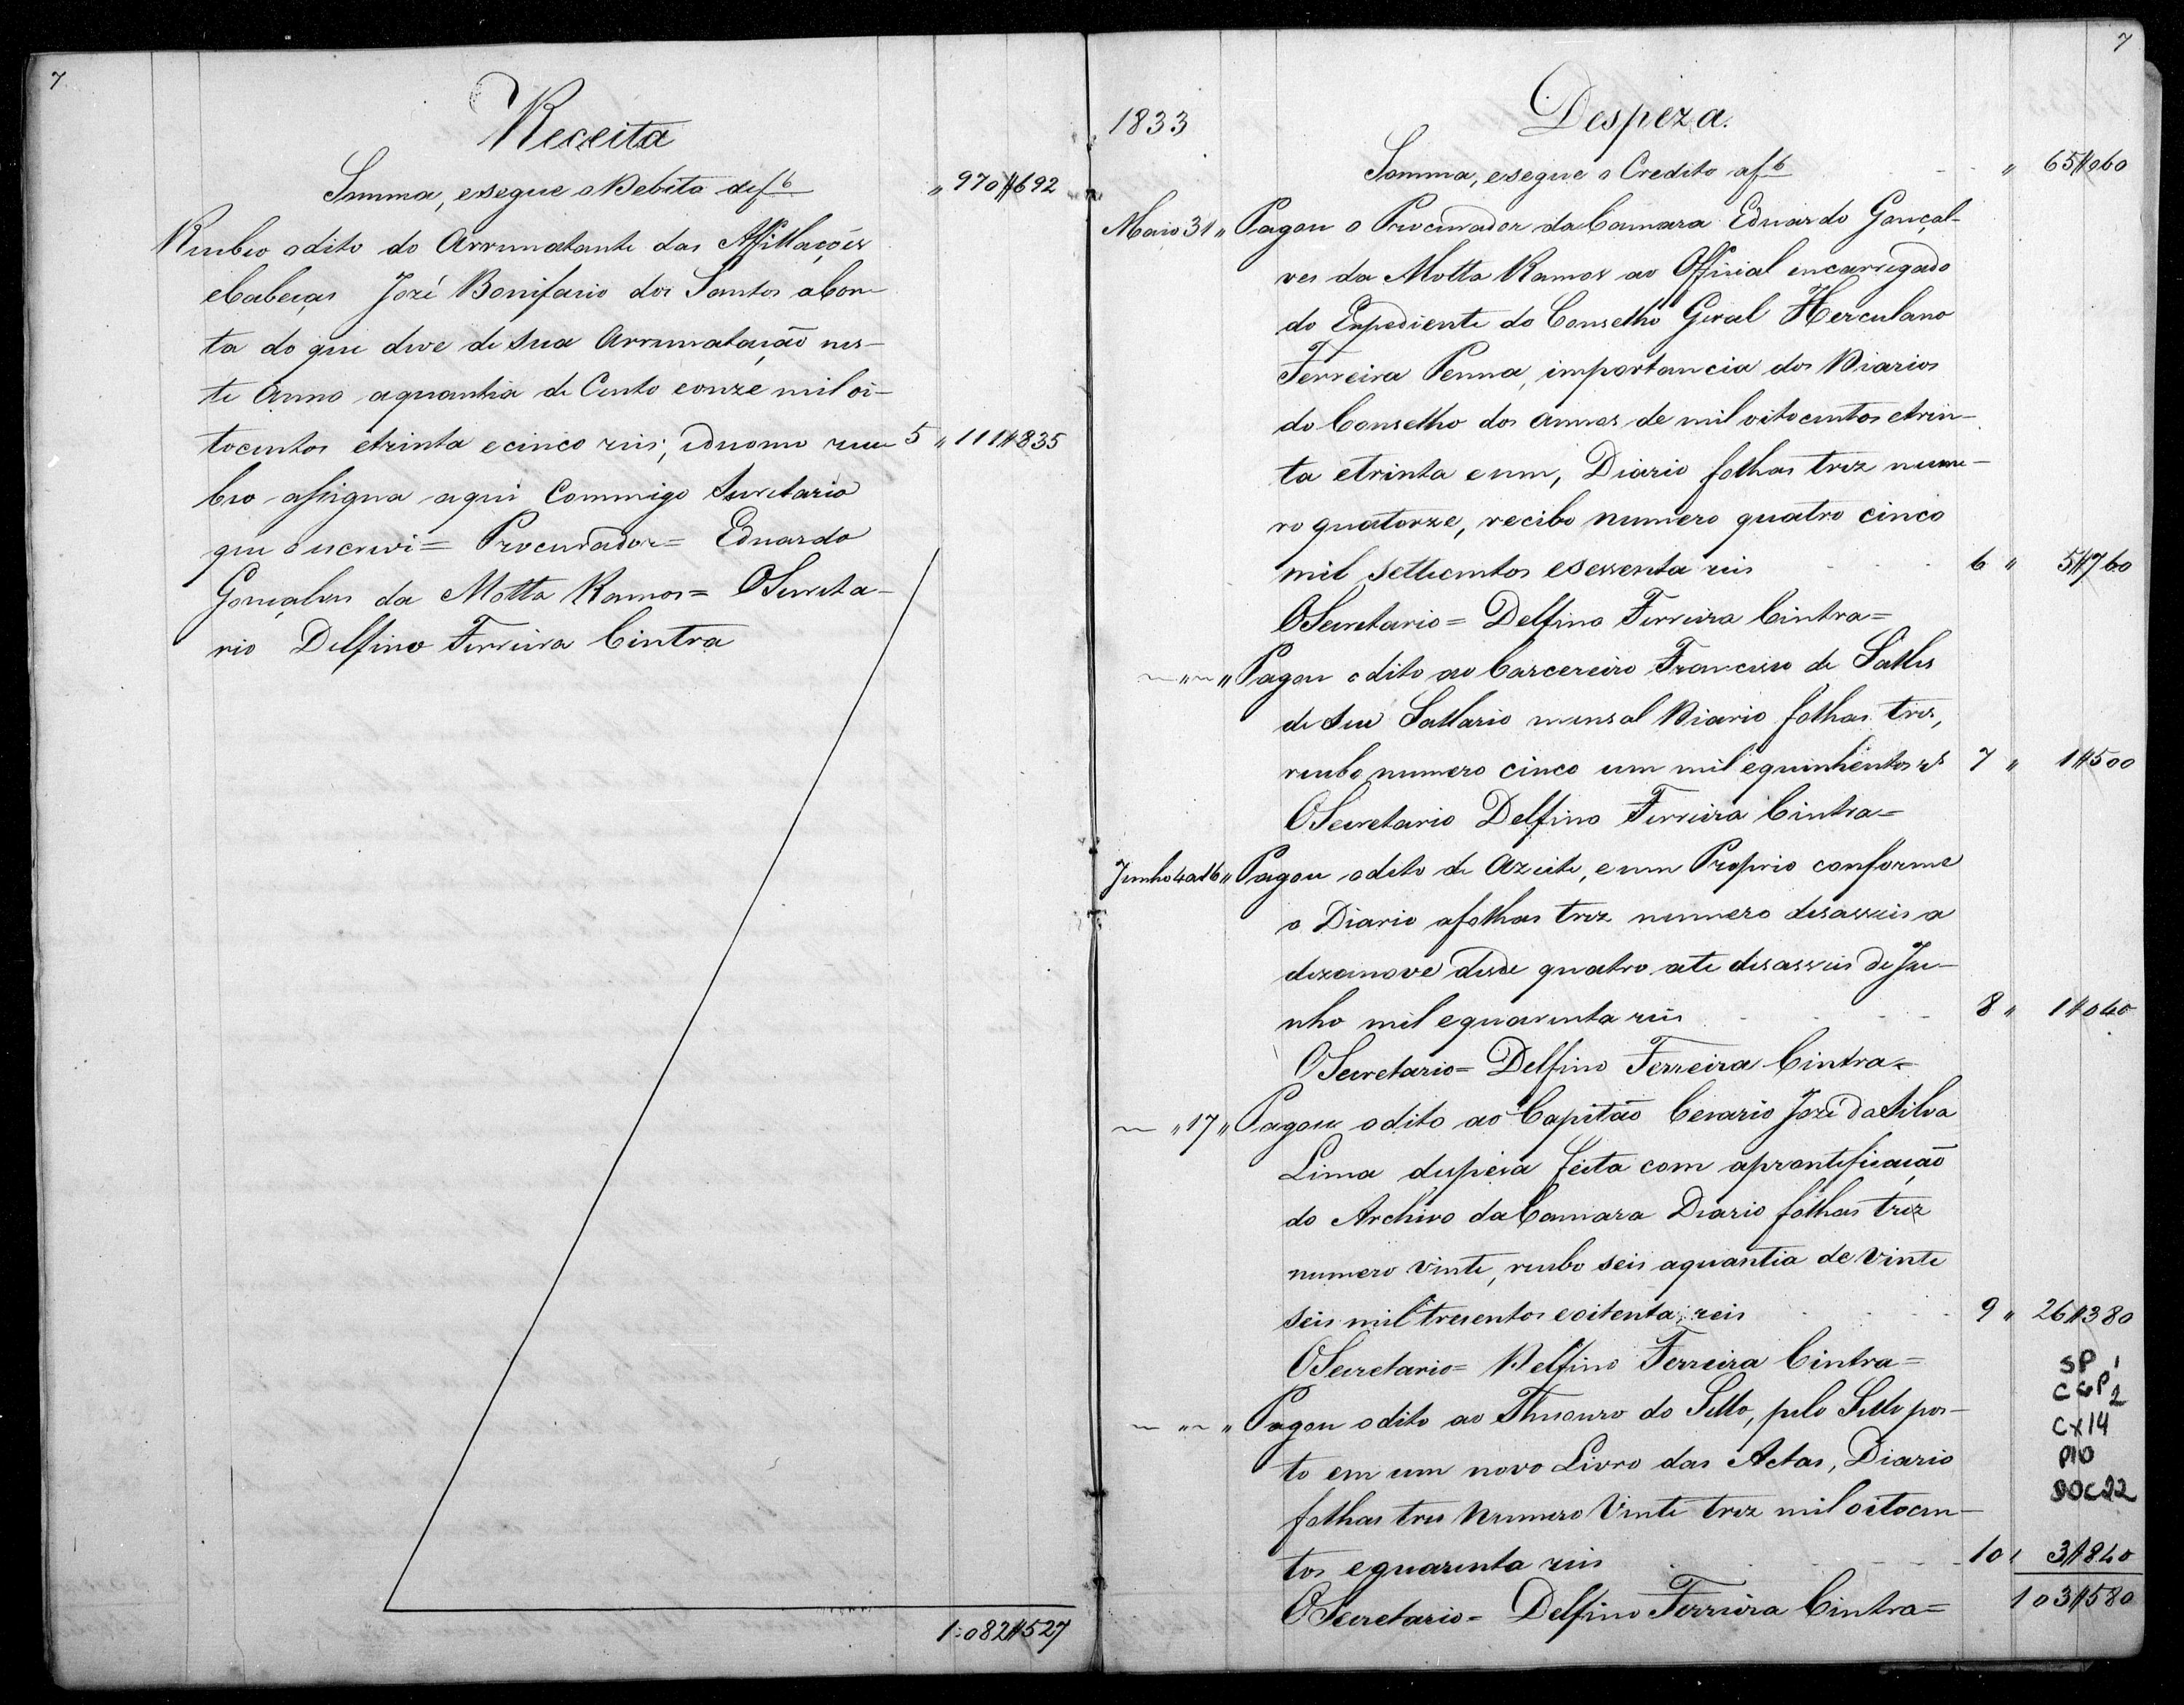 7
Receita
Somma, esegue o Debito de f 6 " 970$692
Recebeo odito do Arrematante das Affillações
eCabeças José Bonifacio dos Santos a Con-
ta do que deve de sua Arrematação nes-
te Anno aquantia de Cento eonze mil oi-
tocentos etrinta ecinco reis; ecomo rece 5 " 111$835
beo assigna aqui Commigo Secretario
que o escrevi = Procurador = Eduardo
Gonçalves da Motta Ramos = OSecreta-
rio Delfino Ferreira Cintra
1:082$527
7
1833 Despeza.
Somma, esegue o Credito af 6 " 65$060
Maio 31 " Pagou o Procurador da Camara Eduardo Gonçal-
ves da Motta Ramos ao Official encarregado
do Expediente do Conselho Geral Herculano
Ferreira Penna, importancia dos Diarios
do Conselho dos annos de mil oitocentos etrin-
ta etrinta eum, Diario folhas trez nume-
ro quatorze, recibo numero quatro cinco
mil settecentos esessenta reis 6 " 5$760
OSecretario = Delfino Ferreira Cintra =
" " Pagou odito ao Carcereiro Francisco de Salles
de seu Sallario mensal Diario folhas tres,
recibo numero cinco um mil equinhentos rs 7 " 1$500
OSecretario Delfino Ferreira Cintra =
Junho 4 a 16 " Pagou odito de Azeite, eum Proprio conforme
o Diario afolhas trez numero desasseis a
dezanove desde quatro ate desasseis de Ju-
nho mil equarenta reis 8 " 1$040
OSecretario = Delfino Ferreira Cintra =
" 17 " Pagou odito ao Capitão Cesario José da Silva
Lima despesa feita com aprontificação
do Archivo da Camara Diario folhas trez
numero vinte, recibo seis aquantia de vinte
seis mil tresentos eoitenta reis 9 " 26$380
OSecretario = Delfino Ferreira Cintra =
" " Pagou odito ao Thesouro do Sello, pelo Sello pos-
to em um novo Livro das Actas, Diario
folhas tres numero Vinte trez mil oitocen-
tos equarenta reis 10 " 3$840
OSecretario = Delfino Ferreira Cintra = 103$580
SP 1
CGP 2
CX14
P10
DOC22